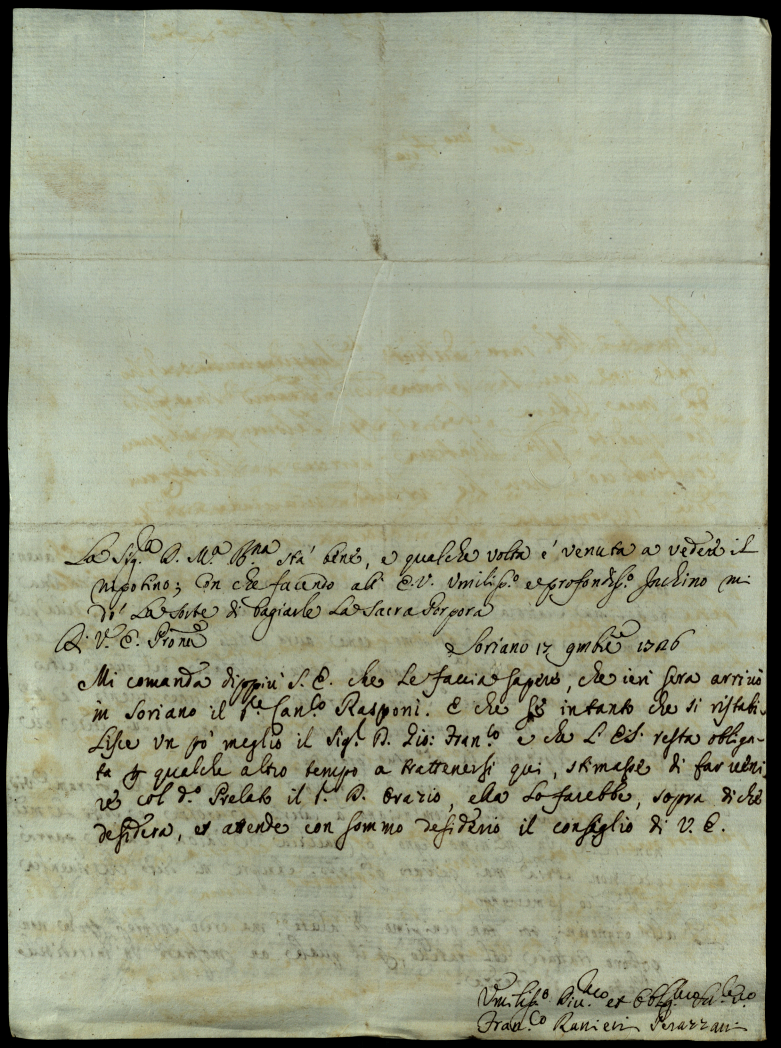 La Sig.ra D. M.a B.na stà bene, e qualche volta è venuta a vedere il
nipotino; Con che facendo all' E.V. Umiliss.o e profondiss.o Inchino mi
dò La sorte di bagiarle La Sacra Porpora
Di V. E. Prone
Soriano 17 9mbre 1726
Mi comanda dippiù S. E. che Le faccia sapere, che ieri sera arrivò
in Soriano il Can.co Rasponi. E che intanto che si ristabi-
Lisce un pò meglio il Sig.r D. Gio: Fran.co e che L' E.S. resta obliga-
ta qualche altro tempo a trattenersi qui, stimasse di far veni-
re col d.o Prelato il S. D. Orazio, ella Lo farebbe, sopra di che
desidera, et attende con sommo desiderio il consiglio di V. E.
Umiliss.o Div.mo et Obblig.mo
Fran.co Ranieri Perazzani